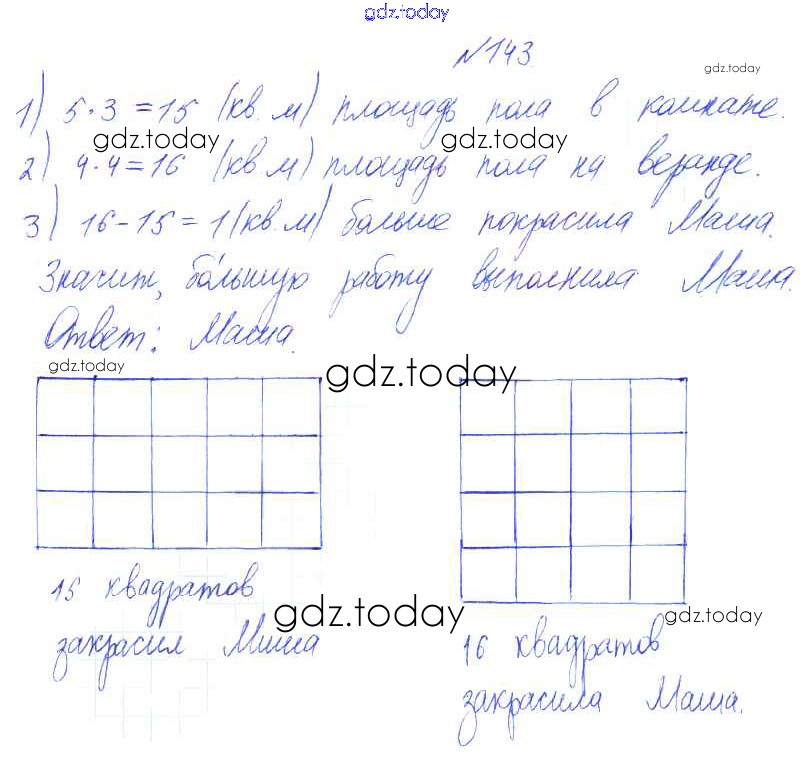 gdz.today
№143.
gdz.today
1) 5·3=15 (кв. м) площадь пола в комнате.
gdz.today gdz.today
2) 4·4=16 (кв. м) площадь пола на веранде.
3) 16-15=1 (кв. м) больше покрасила Маша.
Значит, бо́льшую работу выполнила Маша.
Ответ: Маша.
gdz.today
gdz.today
15 квадратов
закрасил Миша
gdz.today
gdz.today
16 квадратов
закрасила Маша.